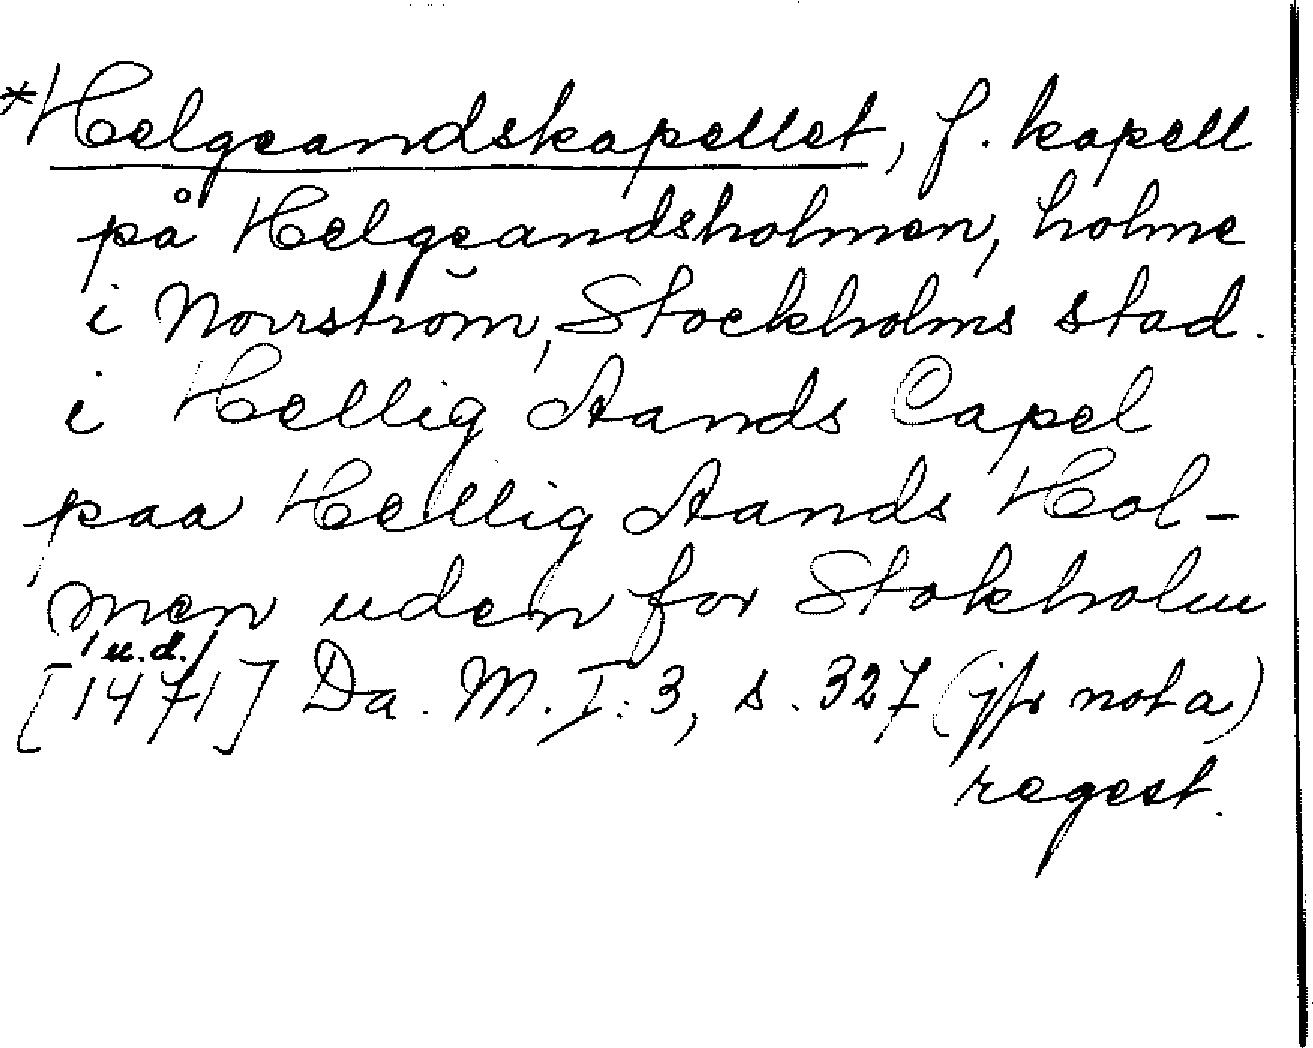 *Helgeandskapellet, f. kapell
på Helgeandsholmen, holme
i Norrström, Stockholms stad.
i Hellig Aands Capel
paa Hellig Aands Hol-
men uden for Stokholm
u.d.
[1471] Da. M. I:3, s. 327 (jfr nota)
regest.